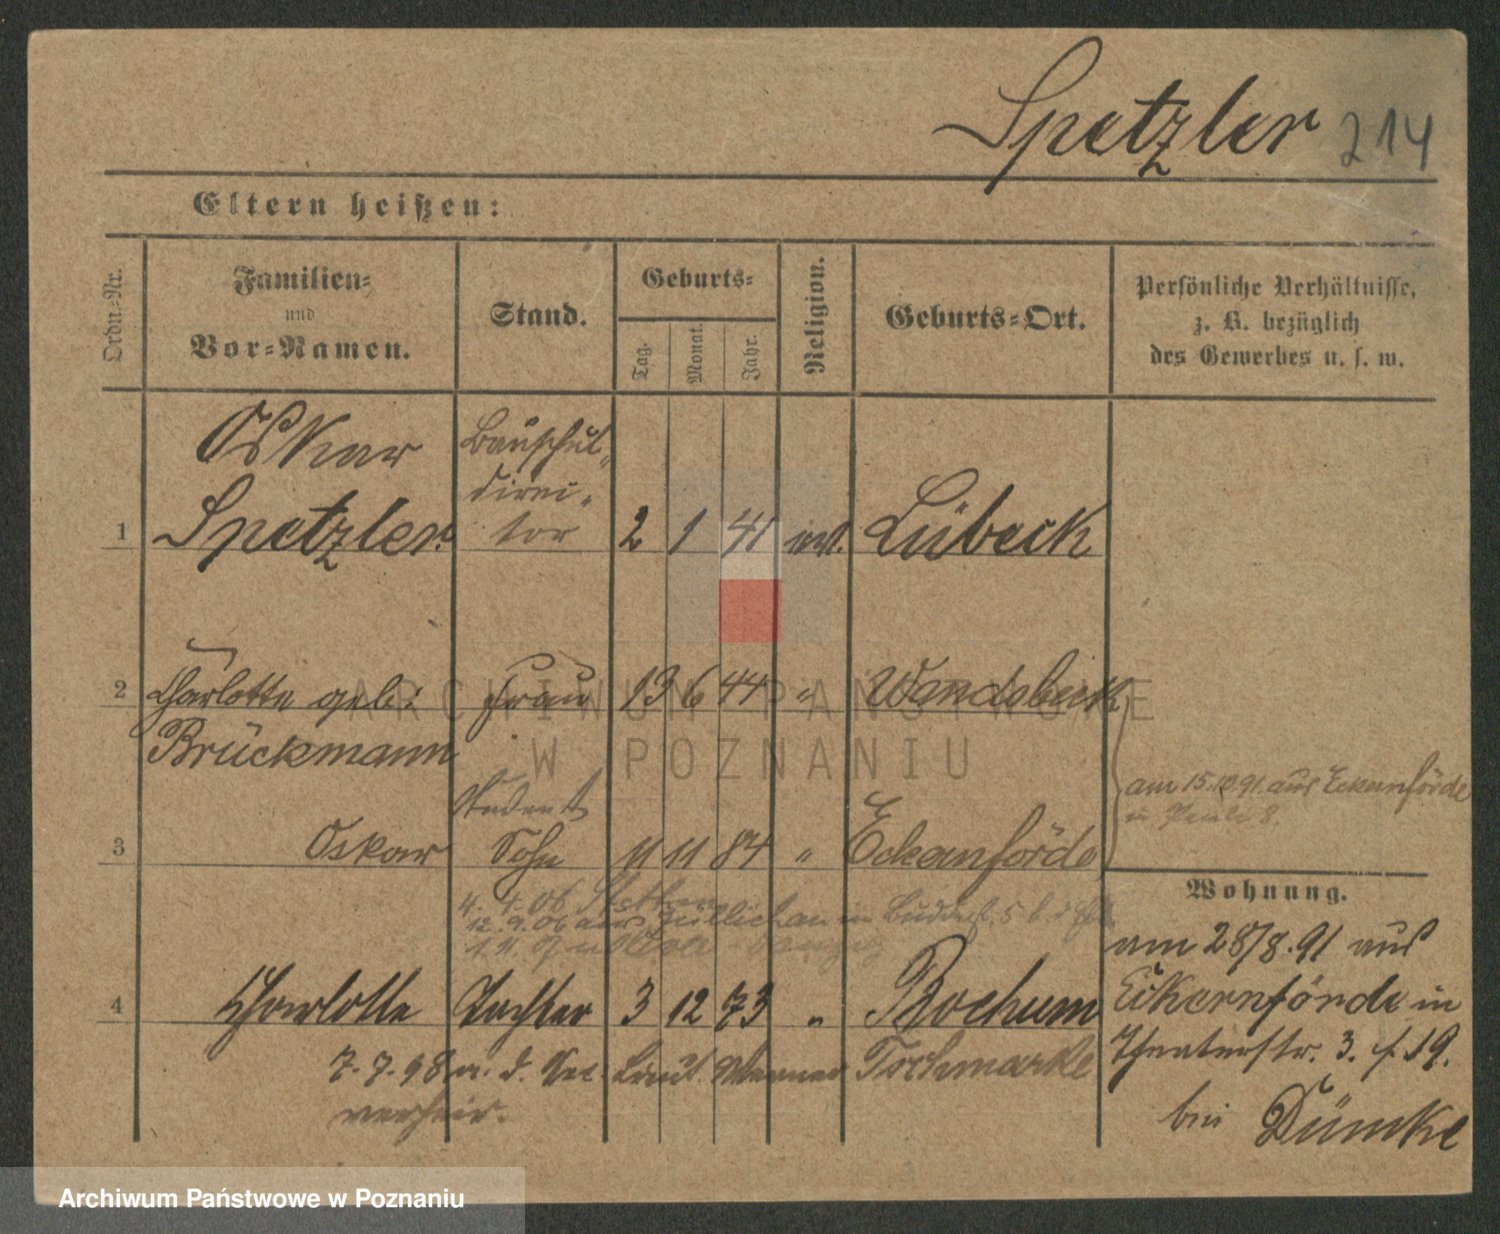 Spetzler 214
Eltern heißen:
Ordn.-Nr. Familien- und Vor-Namen. Stand. Geburts- Tag. Monat. Jahr. Religion. Geburts-Ort. Persönliche Verhältnisse, z. B. bezüglich des Gewerbes u. s. w.
Oskar Bauschul-
direc-
1 Spetzler. tor 2 1 41 ev. Lübeck
2 Charlotte geb: Frau 13 6 44 " Wandsbeck
Brückmann
Student
am 15.10.91. aus Eckernförde
3 Oskar Sohn 11 11 84 " Eckernförde
Wohnung.
4. 4. 06 Stettin
12. 9. 06 aus Züllichau in 5
am 28/8. 91 aus
4 Charlotte Tochter 3 12 73 " Bochum Eckernförde in
7. 7. 98 a. d. Sec. Lieut. Werner Tschmarke Theaterstr. 3. f. 19.
verheir. bei Dümke
ARCHIWUM PAŃSTWOWE
W POZNANIU
Archiwum Państwowe w Poznaniu